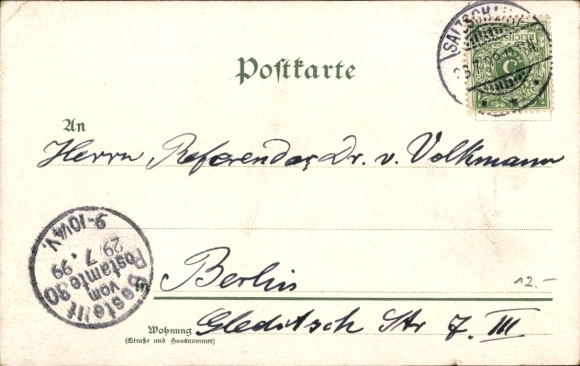 Postkarte
An
Herrn Referendar Dr. v. Volkmann
in Berlin
12.-
Wohnung
(Straße und Hausnummer)
Gleditsch Str 7. III
SALZSCHLIRF
5
Bestellt
vom
Postamte 30
29/7.99
9-10¼V.